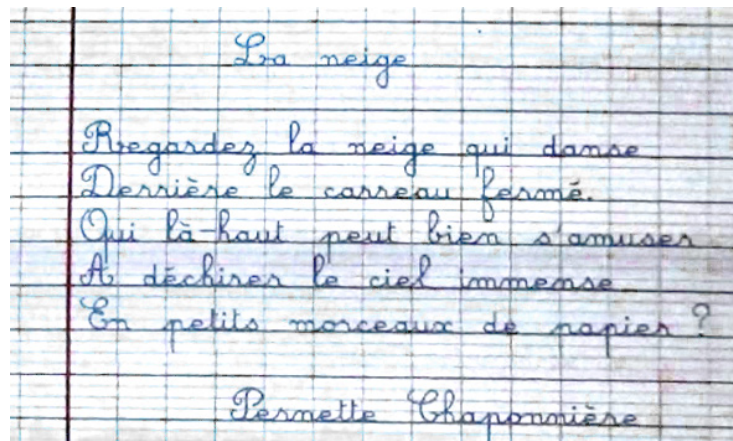 La neige
Regardez la neige qui danse
Derrière le carreau fermé.
Qui là-haut peut bien s'amuser
A déchirer le ciel immense
En petits morceaux de papier ?
Pernette Chaponnière